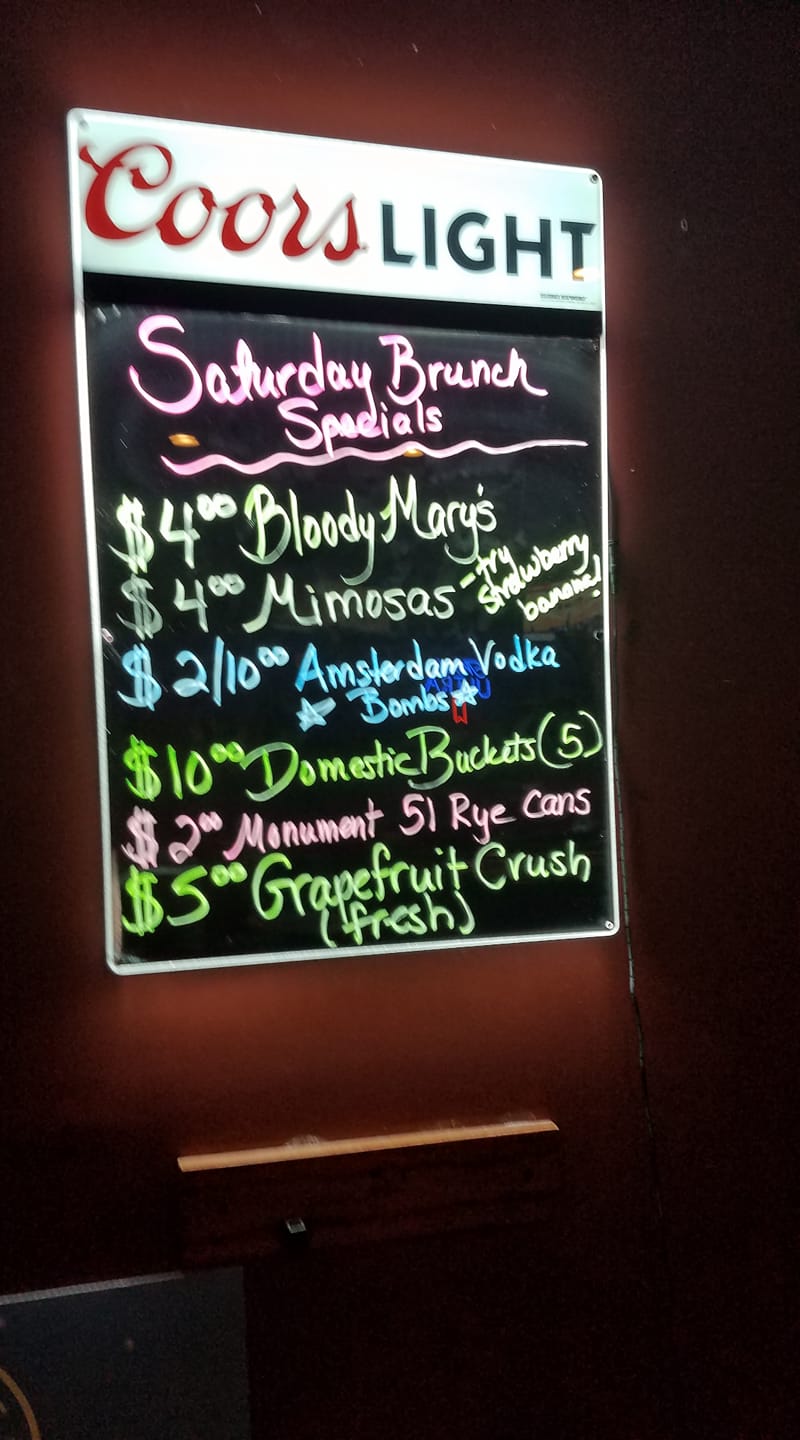 Coors LIGHT
Saturday Brunch
Specials
$4.00 Bloody Mary's
$4.00 Mimosas -try strawberry banana!
$2/10.00 Amsterdam Vodka
Bombs
$10.00 Domestic Buckets (5)
$2.00 Monument 51 Rye Cans
$5.00 Grapefruit Crush
(fresh)